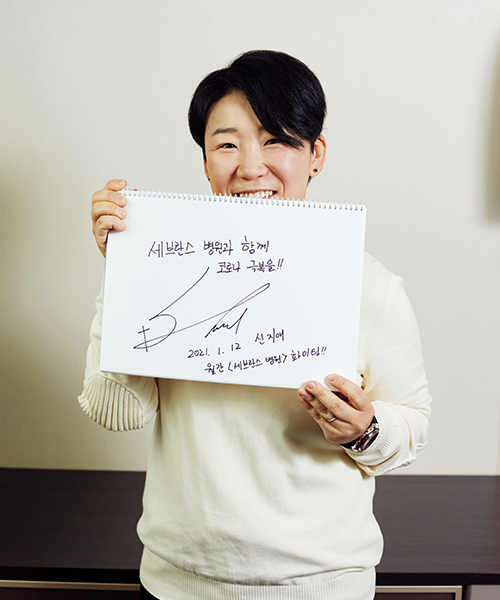 세브란스 병원과 함께
코로나 극복을!!
2021. 1. 12 신지애
월간 <세브란스 병원> 화이팅!!